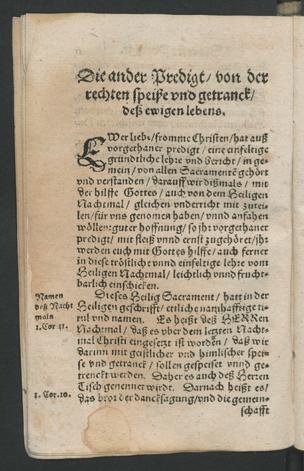 Die ander Predigt / von der
rechten speiße vnd getranck /
deß ewigen lebens.
EWer liebe / fromme Christen / hat auß
vorgethaner predigt / eine einfeltige
gründtliche lehre vnd bericht / in ge-
mein / von allen Sacramentē gehört
vnd verstanden / darauff wir dißmals / mit
der hilffe Gottes / auch von dem Heiligen
Nachtmal / gleichen vnderricht mit zutei-
len / für vns genomen haben / vnnd anfahen
wöllen: guter hoffnung / so jhr vorgethaner
predigt / mit fleiß vnnd ernst zugehöret / jhr
werden euch mit Gottes hilffe / auch ferner
in diese tröstliche vnnd einfeltige lehre vom
Heiligen Nachtmal / leichtlich vnnd frucht-
barlich einschicken.
Namen
deß Nacht
mals
1.Cor 11.
Dieses Heilig Sacrament / hatt in der
Heiligen geschrifft / etliche namhafftige ti-
tel vnd namen. Es heißt deß HERRn
Nachtmal / daß es vber dem letzten Nacht-
mal Christi eingesetzt ist worden / daß wir
darinn mit geistlicher vnd himlischer spei-
se vnd getranck / sollen gespeiset vnnd ge-
trenckt werden. Daher es auch deß Herren
Tisch genennet wirdt. Darnach heißt es /
1. Cor.10.
das brot der dancksagung / vnd die gemein-
schafft